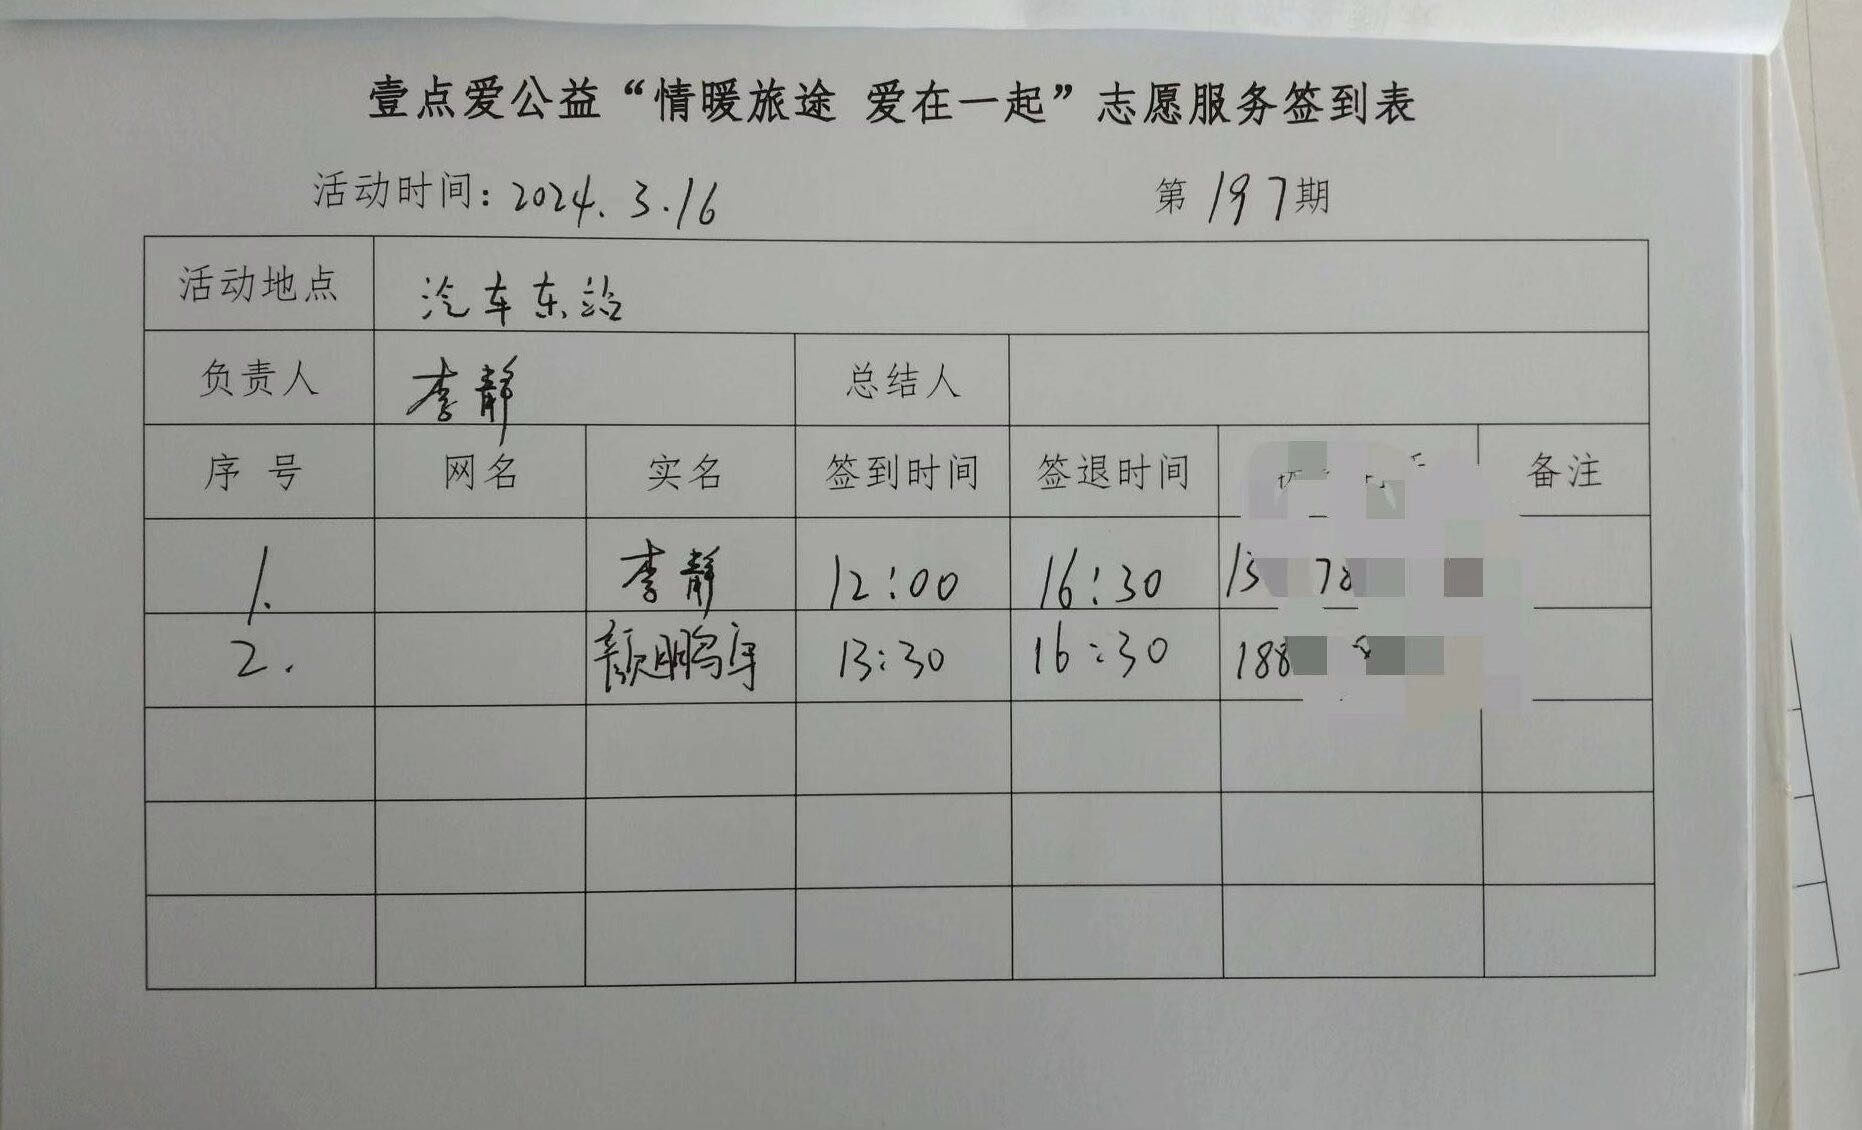 壹点爱公益“情暖旅途 爱在一起”志愿服务签到表
活动时间：2024.3.16 第197期
活动地点 汽车东站
负责人 李静 总结人
序号 网名 实名 签到时间 签退时间 备注
1. 李静 12:00 16:30
2. 颜鹏宇 13:30 16:30 188